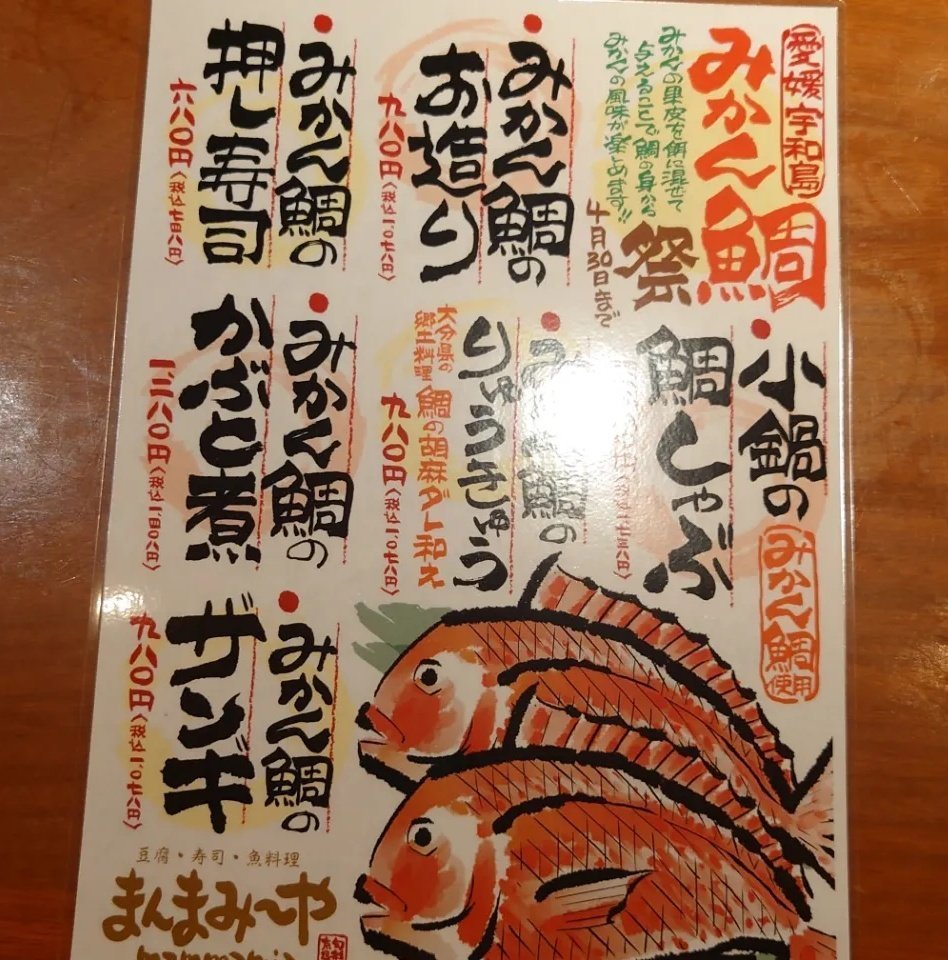 愛媛宇和島
みかん鯛
祭
みかんの果皮を餌に混ぜて
与えることで鯛の身から
みかんの風味が楽しめます!!
4月30日まで
みかん鯛の
お造り
九八〇円(税込一、〇七八円)
みかん鯛の
押し寿司
六八〇円(税込七四八円)
小鍋の
鯛しゃぶ
みかん鯛使用
鯛の
りゅうきゅう
大分県の
郷土料理
鯛の胡麻ダレ和え
九八〇円(税込一、〇七八円)
みかん鯛の
かぶと煮
一、二八〇円(税込一、四〇八円)
みかん鯛の
ザンギ
九八〇円(税込一、〇七八円)
豆腐・寿司・魚料理
まんまみ〜や